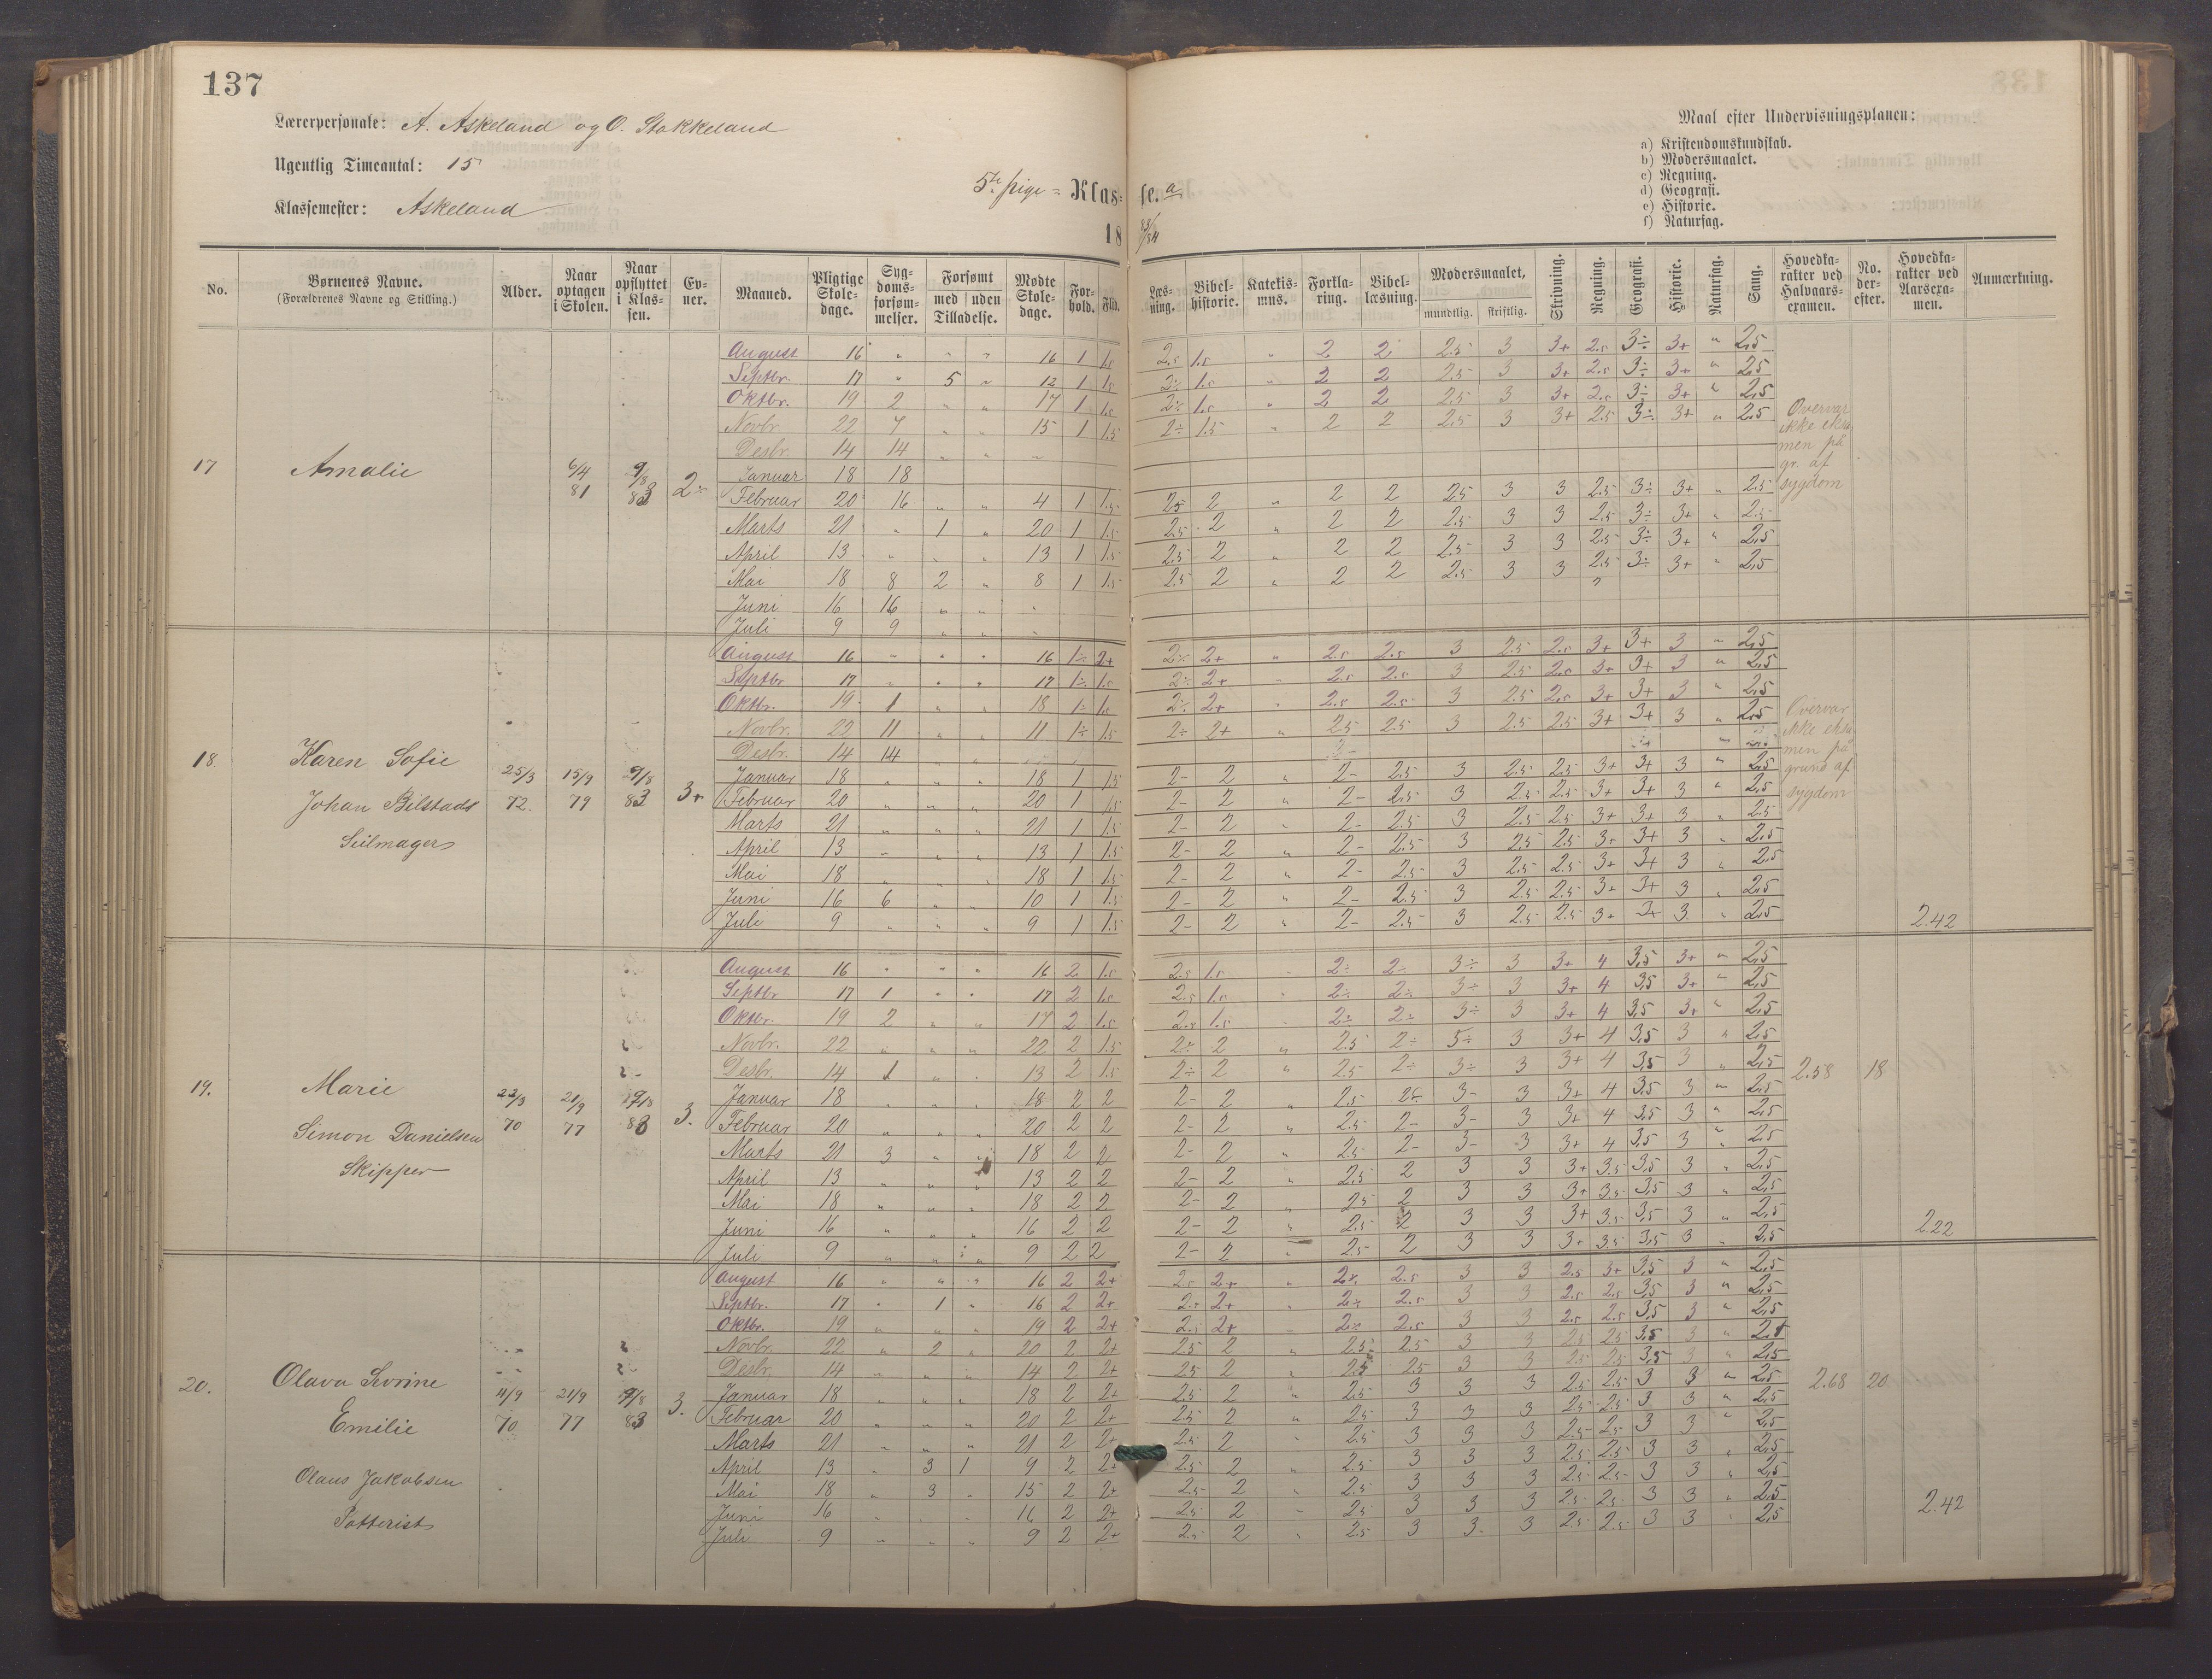 137
Lærerpersonale: A. Askeland og O. Stokkeland
Ugentlig Timeantal: 15
Klassemester: Askeland
5te pige= Klas= se. a
18 83/84
Maal efter Undervisningsplanen:
a) Kristendomskundskab.
b) Modersmaalet.
c) Regning.
d) Geografi.
e) Historie.
f) Naturfag.
No. Børnenes Navne. (Forældrenes Navne og Stilling.) Alder. Naar optagen i Skolen. Naar opflyttet i Klassen. Evner. Maaned. Pligtige Skoledage. Sygdomsforsømmelser. Forsømt med uden Tilladelse. Mødte Skoledage. Forhold. Flid. Læsning. Bibelhistorie. Katekismus. Forklaring. Bibellæsning. Modersmaalet, mundtlig. skriftlig. Skrivning. Regning. Geografi. Historie. Naturfag. Sang. Hovedkarakter ved Halvaarsexamen. No. derefter. Hovedkarakter ved Aarsexamen. Anmærkning.
17 Amalie 6/4 81 9/8 83 2÷
August 16 " " " 16 1 1.5 2.5 1.5 " 2 2 2.5 3 3+ 2.5 3÷ 3+ " 2,5
Septbr. 17 " 5 " 12 1 1.5 2÷ 1.5 " 2 2 2.5 3 3+ 2.5 3÷ 3+ " 2,5
Oktbr. 19 2 " " 17 1 1.5 2÷ 1.5 " 2 2 2.5 3 3+ 2.5 3÷ 3+ " 2,5
Novbr. 22 7 " " 15 1 1.5 2÷ 1.5 " 2 2 2.5 3 3+ 2.5 3÷ 3+ " 2,5
Desbr. 14 14 " " "
Januar 18 18
Februar 20 16 " " 4 1 1.5 2.5 2 " 2 2 2.5 3 3 2.5 3÷ 3+ " 2.5
Marts 21 " 1 " 20 1 1.5 2.5 2 " 2 2 2.5 3 3 2.5 3÷ 3+ " 2.5
April 13 " " " 13 1 1.5 2.5 2 " 2 2 2.5 3 3 2.5 3÷ 3+ " 2,5
Mai 18 8 2 " 8 1 1.5 2.5 2 " 2 2 2.5 3 3 2.5 3÷ 3+ " 2,5
Juni 16 16 " " "
Juli 9 9 " " "
Overvar ikke eksamen på gr. af sygdom
18. Karen Sofie
Johan Bilstads
Seilmager
25/3 72. 15/9 79 9/8 83 3+
August 16 " " " 16 1÷ 2+ 2÷ 2+ " 2.5 2.5 3 2.5 2.5 3+ 3+ 3 " 2,5
Septbr 17 " " " 17 1÷ 1.5 2÷ 2+ " 2.5 2.5 3 2.5 2.5 3+ 3+ 3 " 2,5
Oktbr. 19 1 " " 18 1÷ 1.5 2÷ 2+ " 2.5 2.5 3 2.5 2.5 3+ 3+ 3 " 2,5
Novbr. 22 11 " " 11 1÷ 1.5 2÷ 2+ " 2.5 2.5 3 2.5 2.5 3+ 3+ 3 " 2,5
Desbr. 14 14 " "
Januar 18 " " " 18 1 1.5 2- 2 " 2- 2.5 3 2.5 2.5 3+ 3+ 3 " 2,5
Februar 20 " " " 20 1 1.5 2- 2 " 2- 2.5 3 2.5 2.5 3+ 3+ 3 " 2,5
Marts 21 " " " 21 1 1.5 2- 2 " 2- 2.5 3 2.5 2.5 3+ 3+ 3 " 2.5
April 13 " " " 13 1 1.5 2- 2 " 2- 2.5 3 2.5 2.5 3+ 3+ 3 " 2,5
Mai 18 " " " 18 1 1.5 2- 2 " 2- 2.5 3 2.5 2.5 3+ 3+ 3 " 2,5
Juni 16 6 " " 10 1 1.5 2- 2 " 2- 2.5 3 2.5 2.5 3+ 3+ 3 " 2,5
Juli 9 " " " 9 1 1.5 2- 2 " 2- 2.5 3 2.5 2.5 3+ 3+ 3 " 2,5 2.42
Overvar ikke eksamen på grund af sygdom
19. Marie
Simon Danielsen
Skipper
22/3 70 21/9 77 9/8 83 3.
August 16 " " " 16 2 1.5 2.5 1.5 " 2÷ 2÷ 3÷ 3 3+ 4 3,5 3+ " 2,5
Septbr 17 1 " " 17 2 1.5 2.5 1.5 " 2÷ 2÷ 3÷ 3 3+ 4 3,5 3+ " 2,5
Oktbr. 19 2 " " 17 2 1.5 2.5 1.5 " 2÷ 2÷ 3÷ 3 3+ 4 3,5 3+ " 2,5
Novbr. 22 " " " 22 2 1.5 2÷ 2 " 2.5 2÷ 3÷ 3 3+ 4 3,5 3 " 2,5
Desbr. 14 1 " " 13 2 1.5 2÷ 2 " 2.5 2÷ 3÷ 3 3+ 4 3,5 3 " 2,5 2.58 18
Januar 18 " " " 18 2 2 2- 2 " 2.5 2÷ 3- 3 3+ 4 3,5 3 " 2,5
Februar 20 " " " 20 2 2 2- 2 " 2.5 2- 3- 3 3+ 4 3,5 3 " 2,5
Marts 21 3 " " 18 2 2 2- 2 " 2.5 2- 3- 3 3+ 4 3,5 3 " 2,5
April 13 " " " 13 2 2 2- 2 " 2.5 2 3 3 3+ 3.5 3,5 3 " 2,5
Mai 18 " " " 18 2 2 2- 2 " 2.5 2 3 3 3+ 3.5 3,5 3 " 2,5
Juni 16 " " " 16 2 2 2- 2 " 2.5 2 3 3 3+ 3.5 3,5 3 " 2,5
Juli 9 " " " 9 2 2 2- 2 " 2.5 2 3 3 3+ 3.5 3,5 3 " 2,5 2.22
20. Olava Sevrine
Emilie
Olaus Jakobsen
11/9 70 21/9 77 9/8 83 3.
August 16 " " " 16 2 2+ 2.5 2+ " 2÷ 2.5 3 3 2.5 3+ 3,5 3 " 2,5
Septbr. 17 " 1 " 16 2 2+ 2.5 2+ " 2÷ 2.5 3 3 2.5 2.5 3,5 3 " 2,5
Oktbr. 19 " " " 19 2 2+ 2.5 2+ " 2÷ 2.5 3 3 2.5 2.5 3,5 3 " 2,5
Novbr. 22 " 2 " 20 2 2+ 2.5 2 " 2.5 2.5 3 3 2.5 2.5 3,5 3 " 2,5
Desbr. 14 " " " 14 2 2+ 2.5 2 " 2.5 2.5 3 3 2.5 2.5 3,5 3 " 2,5
Januar 18 " " " 18 2 2+ 2.5 2 " 2.5 3 3 3 2.5 2.5 3 3 " 2,5 2.68 20
Februar 20 " " " 20 2 2+ 2.5 2 " 2.5 3 3 3 2.5 2.5 3 3 " 2,5
Marts 21 " " " 21 2 2+ 2.5 2 " 2.5 3 3 3 2.5 2.5 3 3 " 2,5
April 13 " 3 1 9 2 2+ 2.5 2 " 2.5 3 3 3 2.5 2.5 3 3 " 2,5
Mai 18 " 3 " 15 2 2+ 2.5 2 " 2.5 3 3 3 2.5 2.5 3 3 " 2,5
Juni 16 " " " 16 2 2+ 2.5 2 " 2.5 3 3 3 2.5 2.5 3 3 " 2,5
Juli 9 " " " 9 2 2+ 2.5 2 " 2.5 3 3 3 2.5 2.5 3 3 " 2,5 2.42